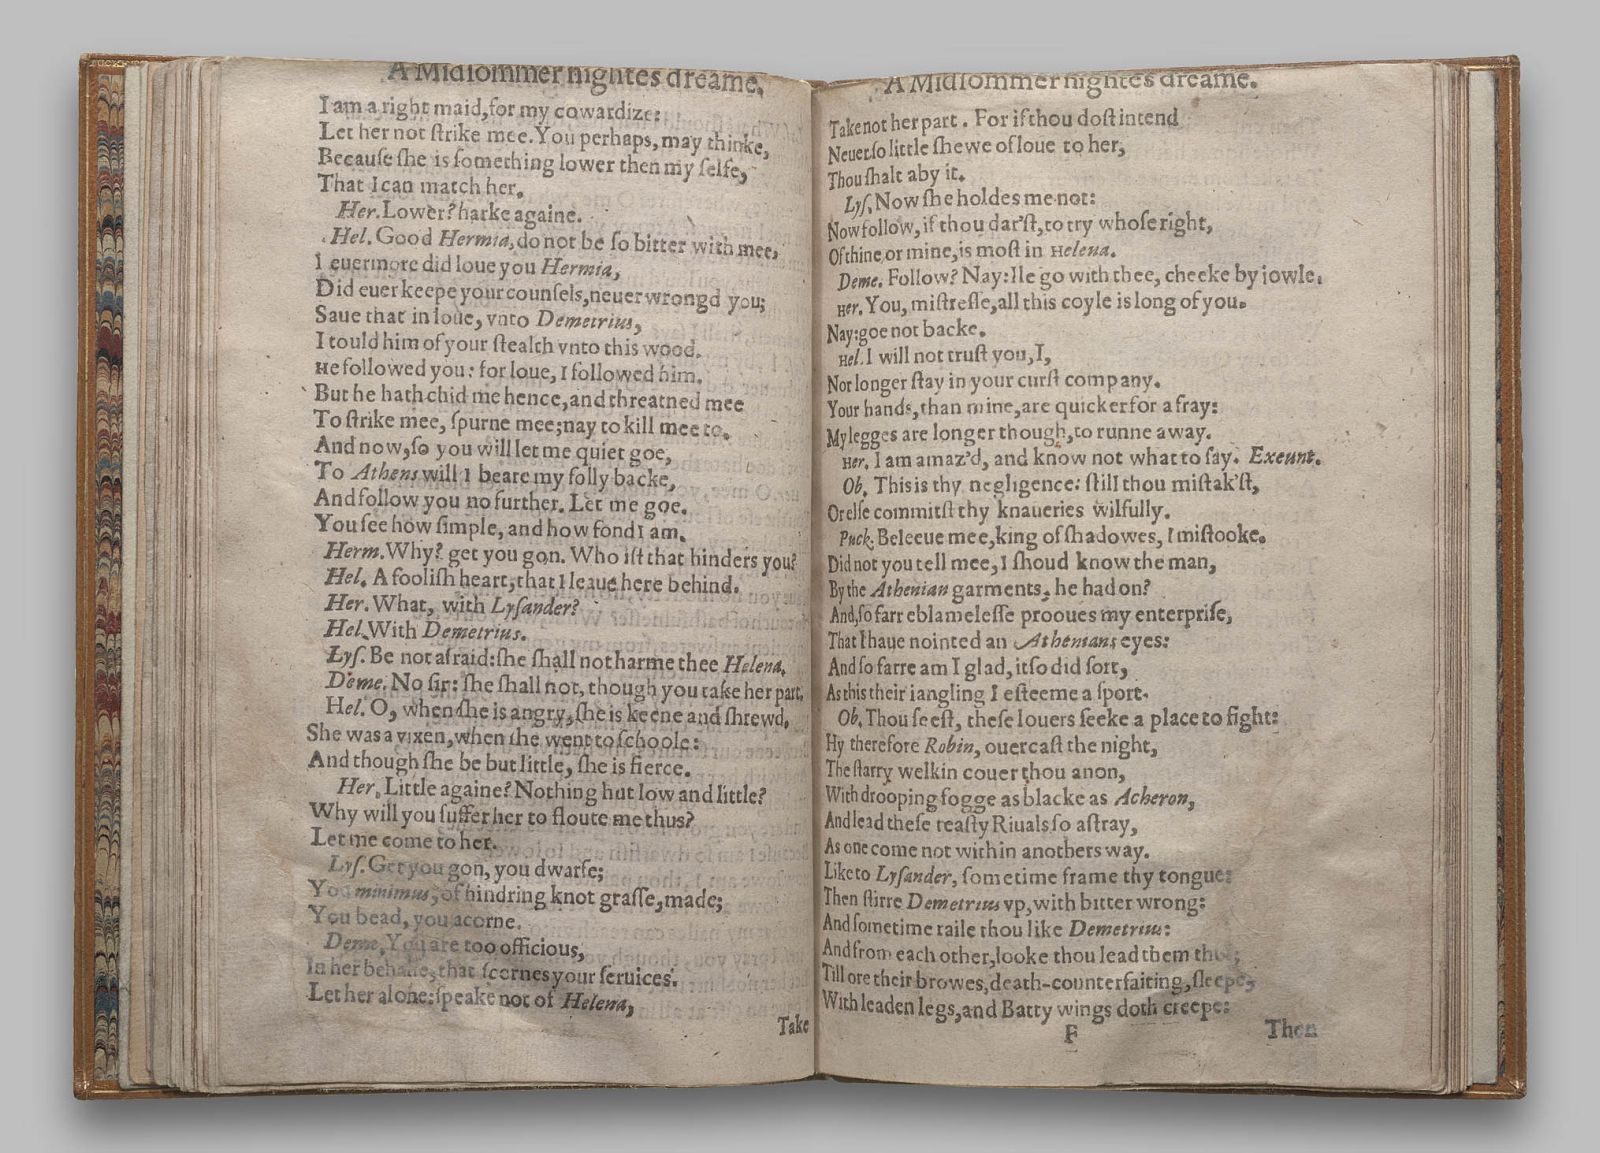 A Midsommer nightes dreame.
I am a right maid, for my cowardize:
Let her not ſtrike mee. You perhaps, may thinke,
Becauſe ſhe is ſomething lower then my ſelfe,
That I can match her.
Her. Lower? harke againe.
Hel. Good Hermia, do not be ſo bitter with mee,
I euermore did loue you Hermia,
Did euer keepe your counſels, neuer wrongd you;
Saue that in loue, vnto Demetrius,
I tould him of your ſtealth vnto this wood.
He followed you: for loue, I followed him.
But he hath chid me hence, and threatned mee
To ſtrike mee, ſpurne mee; nay to kill mee to.
And now, ſo you will let me quiet goe,
To Athens will I beare my folly backe,
And follow you no further. Let me goe.
You ſee how ſimple, and how fond I am.
Herm. Why? get you gon. Who iſt that hinders you?
Hel. A fooliſh heart, that I leaue here behind.
Her. What, with Lyſander?
Hel. With Demetrius.
Lyſ. Be not afraid: ſhe ſhall not harme thee Helena.
Deme. No ſir: ſhe ſhall not, though you take her part.
Hel. O, when ſhe is angry, ſhe is keene and ſhrewd.
She was a vixen, when ſhe went to ſchoole:
And though ſhe be but little, ſhe is fierce.
Her. Little againe? Nothing but low and little?
Why will you ſuffer her to floute me thus?
Let me come to her.
Lyſ. Get you gon, you dwarfe;
You minimus, of hindring knot graſſe, made;
You bead, you acorne.
Deme. You are too officious,
In her behalfe, that ſcornes your ſeruices.
Let her alone: ſpeake not of Helena,
Take
A Midsommer nightes dreame.
Take not her part. For if thou doſt intend
Neuer ſo little ſhewe of loue to her,
Thou ſhalt aby it.
Lyſ. Now ſhe holdes me not:
Now follow, if thou dar'ſt, to try whoſe right,
Of thine or mine, is moſt in Helena.
Deme. Follow? Nay: Ile go with thee, cheeke by iowle.
Her. You, miſtreſſe, all this coyle is long of you.
Nay: goe not backe.
Hel. I will not truſt you, I,
Nor longer ſtay in your curſt company.
Your hands, than mine, are quicker for a fray:
My legges are longer though, to runne away.
Her. I am amaz'd, and know not what to ſay. Exeunt.
Ob. This is thy negligence: ſtill thou miſtak'ſt,
Or elſe commitſt thy knaueries wilfully.
Puck. Beleeue mee, king of ſhadowes, I miſtooke.
Did not you tell mee, I ſhoud know the man,
By the Athenian garments, he had on?
And, ſo farre blameleſſe prooues my enterpriſe,
That I haue nointed an Athenians eyes:
And ſo farre am I glad, it ſo did ſort,
As this their iangling I eſteeme a ſport.
Ob. Thou ſeeſt, theſe louers ſeeke a place to fight:
Hy therefore Robin, ouercaſt the night,
The ſtarry welkin couer thou anon,
With drooping fogge as blacke as Acheron,
And lead theſe teaſty Riuals ſo aſtray,
As one come not within anothers way.
Like to Lyſander, ſometime frame thy tongue:
Then ſtirre Demetrius vp, with bitter wrong:
And ſometime raile thou like Demetrius:
And from each other, looke thou lead them thus;
Till ore their browes, death-counterfaiting, ſleepe,
With leaden legs, and Batty wings doth creepe:
F
Then